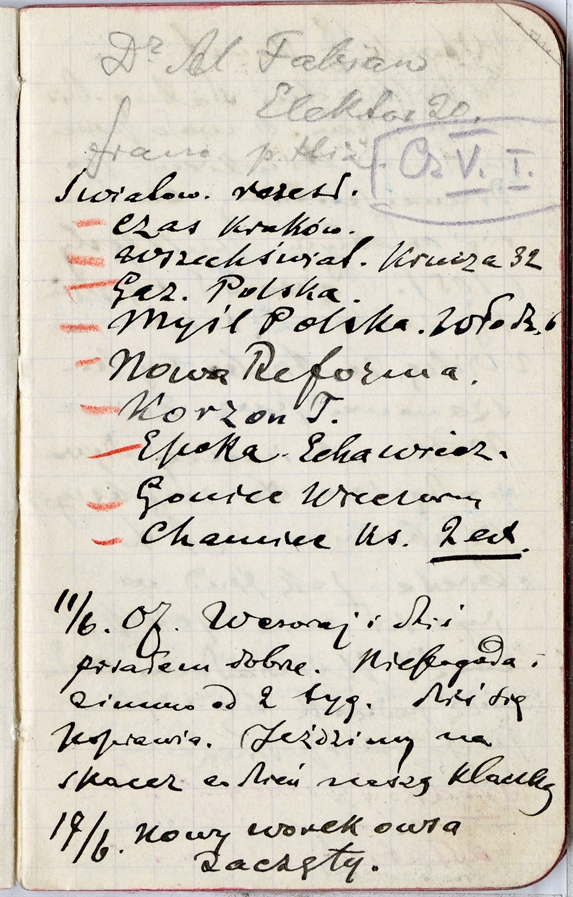 Dr Al Fabian
Elektor 20.
Cz V. I.
Światow. rozesł.
Czas Kraków.
Wszechświat. Krucza 32
Gaz. Polska.
Myśl Polska. Włodz. 6
Nowa Reforma.
Korzon T.
Epoka Echa wiecz.
Goniec Wieczorny
Chamiec Ks. 2 ed.
11/6. Of. Wczoraj i dziś
pisałem dobrze. Niepogoda i
zimno od 2 tyg. dziś się
poprawia. Jeździmy na
spacer co dzień naszą klaczką
14/6. Nowy worek owsa
zaczęty.